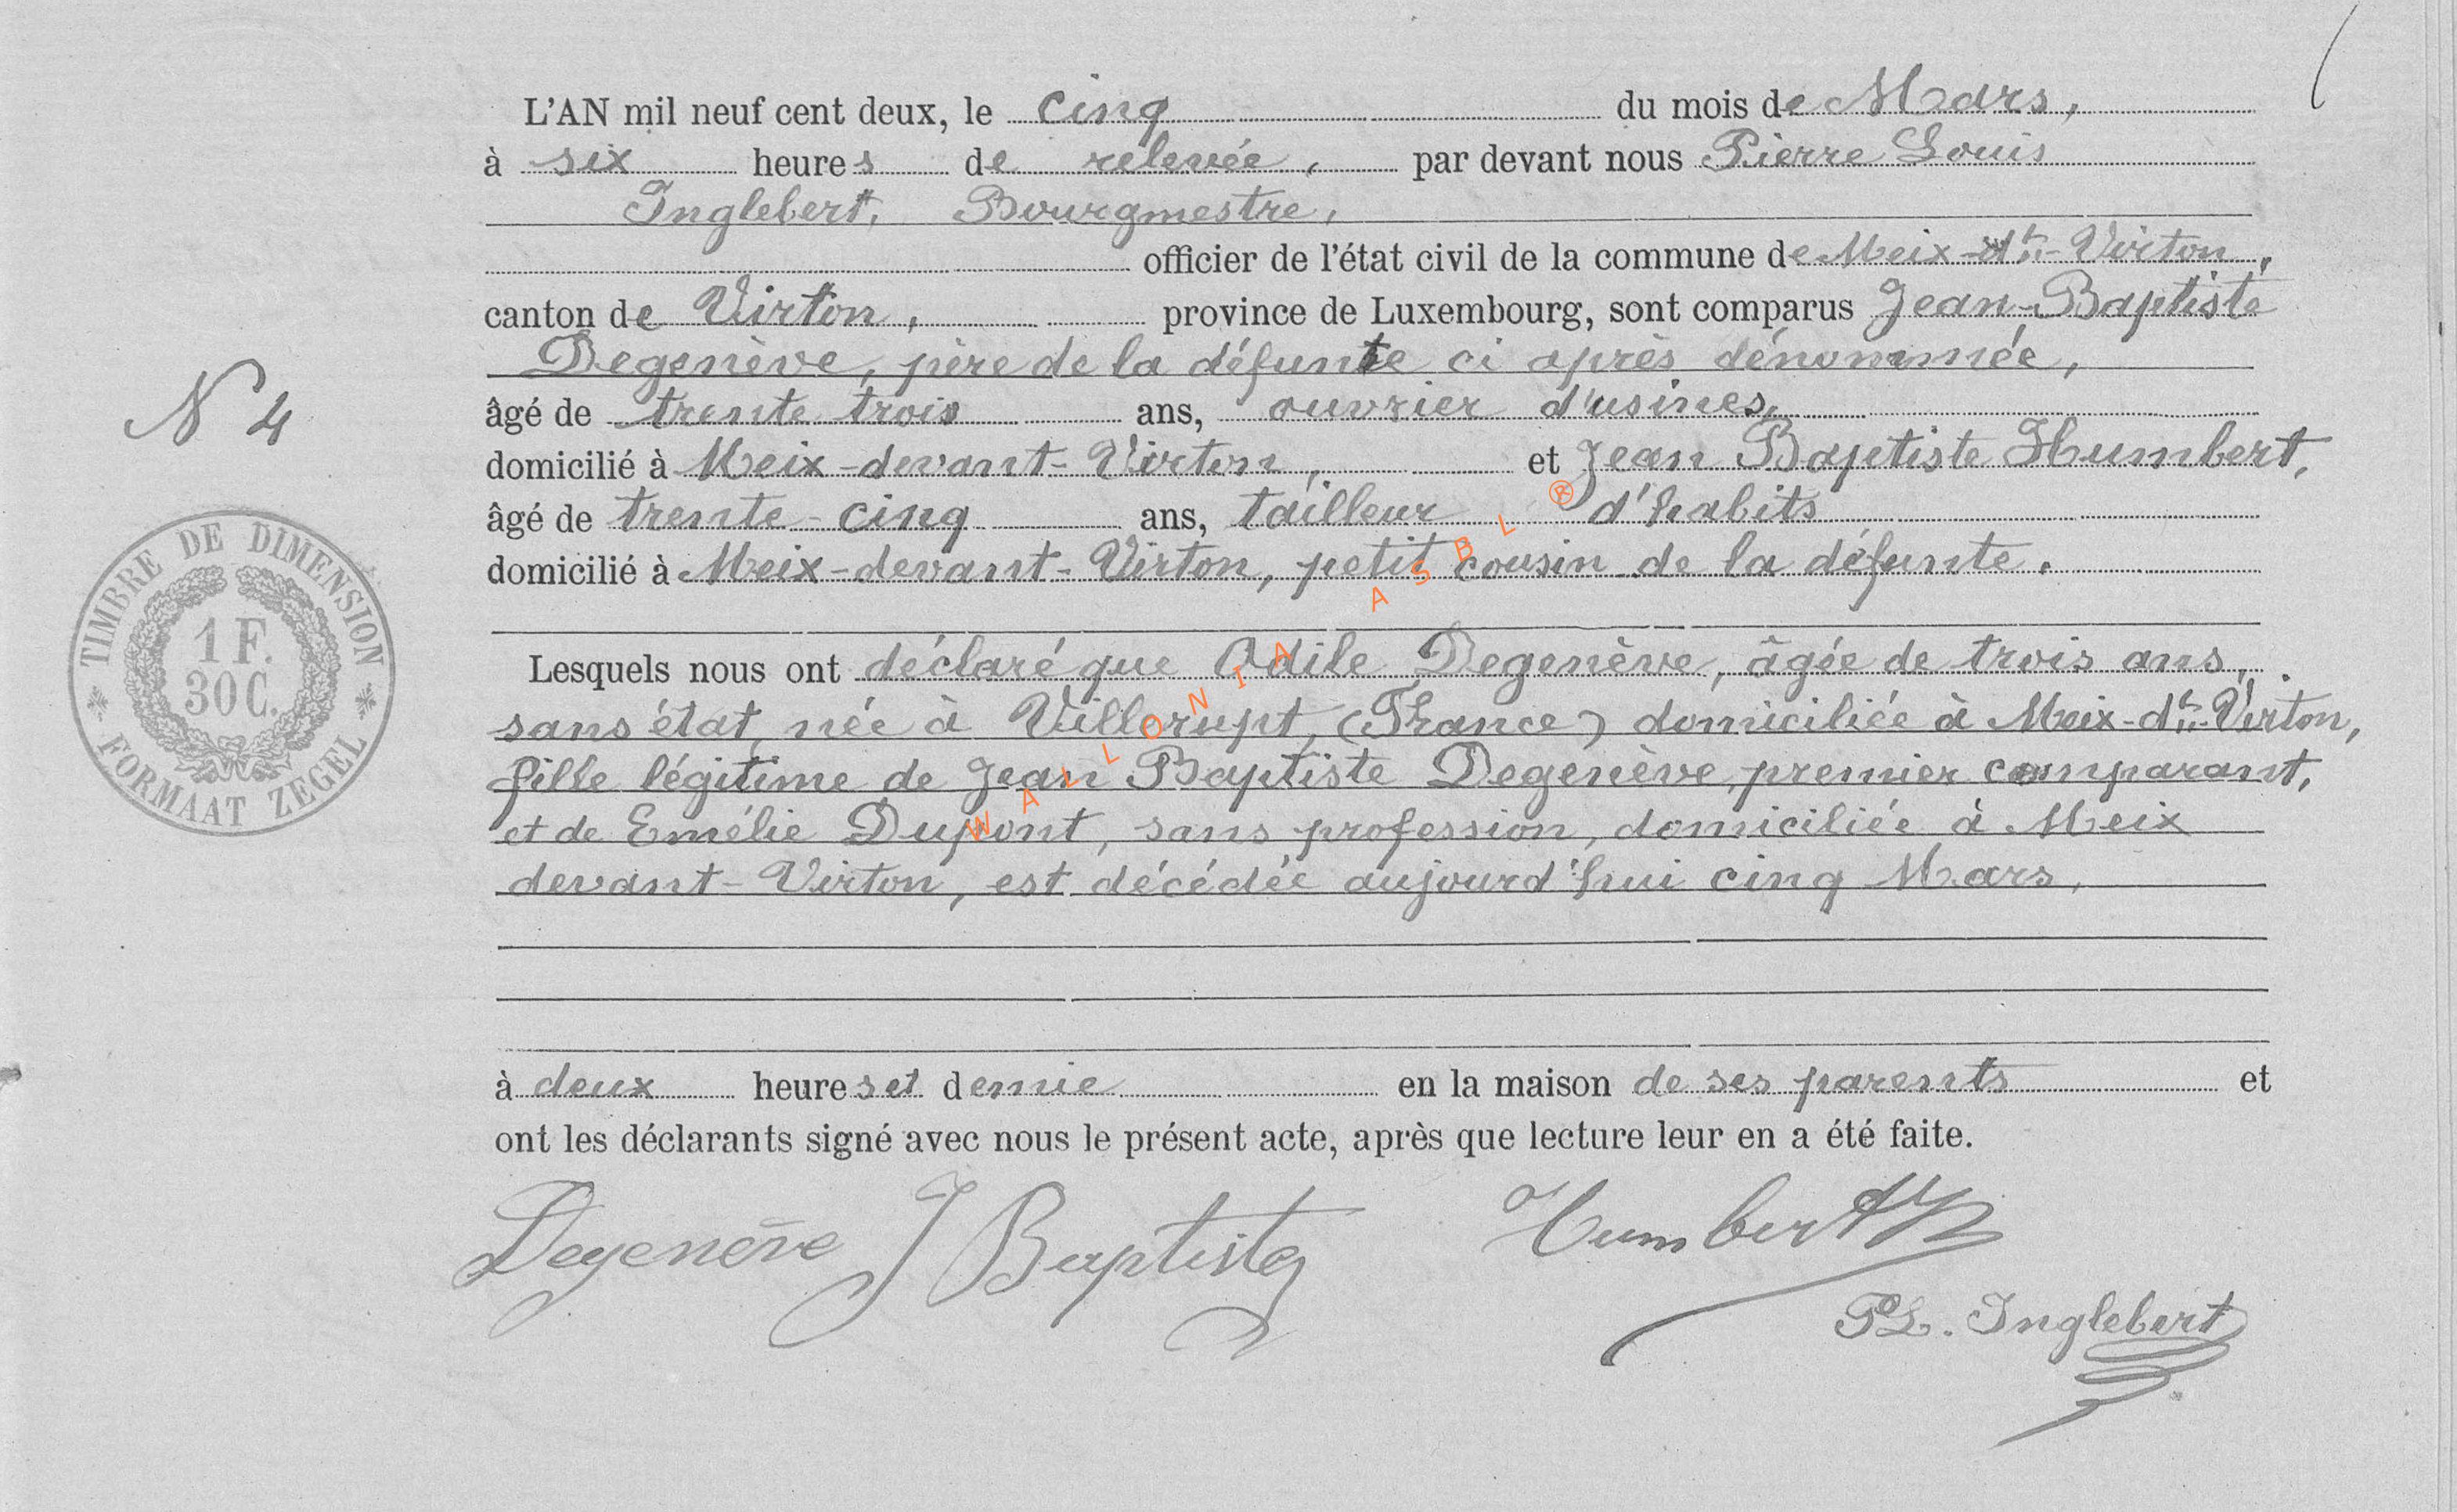 L'AN mil neuf cent deux, le cinq du mois de Mars,
à six heures de relevée, par devant nous Pierre Louis
Inglebert, Bourgmestre,
officier de l'état civil de la commune de Meix-dt-Virton,
canton de Virton, province de Luxembourg, sont comparus Jean-Baptiste
Degenève, père de la défunte ci après dénommée,
âgé de trente trois ans, ouvrier d'usines,
domicilié à Meix-devant-Virton, et Jean Baptiste Humbert,
âgé de trente-cinq ans, tailleur d'habits
domicilié à Meix-devant-Virton, petit cousin de la défunte.
N 4
TIMBRE DE DIMENSION
1 F.
30 C.
FORMAAT ZEGEL
Lesquels nous ont déclaré que Odile Degenève, âgée de trois ans,
sans état, née à Villerupt, (France) domiciliée à Meix-dt-Virton,
fille légitime de Jean Baptiste Degenève, premier comparant,
et de Emélie Dupont, sans profession, domiciliée à Meix
devant-Virton, est décédée aujourd'hui cinq Mars,
à deux heures et demie en la maison de ses parents et
ont les déclarants signé avec nous le présent acte, après que lecture leur en a été faite.
Degenève J Baptiste Humbert
PL. Inglebert
WALLONIA ASBL ®